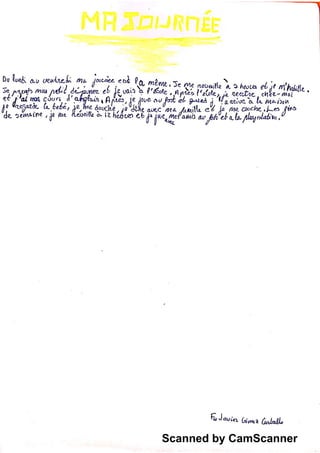 MA JOURNÉE
De lundi au vendredi ma journée est la même. Je me reveille à 7 heures et je m'habille.
Je prends mon petit déjeuner et je vais à l'école. Après l'école, je rentre, chez-moi
et j'ai mon cours d'anglais. Après, je joue au foot et quand j'arrive à la maison
je regarde la télé, je me douche, je dîne avec ma famille et je me couche. Les fins
de semaine, je me réveille à 12 heures et je joue avec mes amis au foot et a la playstation.
Fco Javier Gómez
Scanned by CamScanner